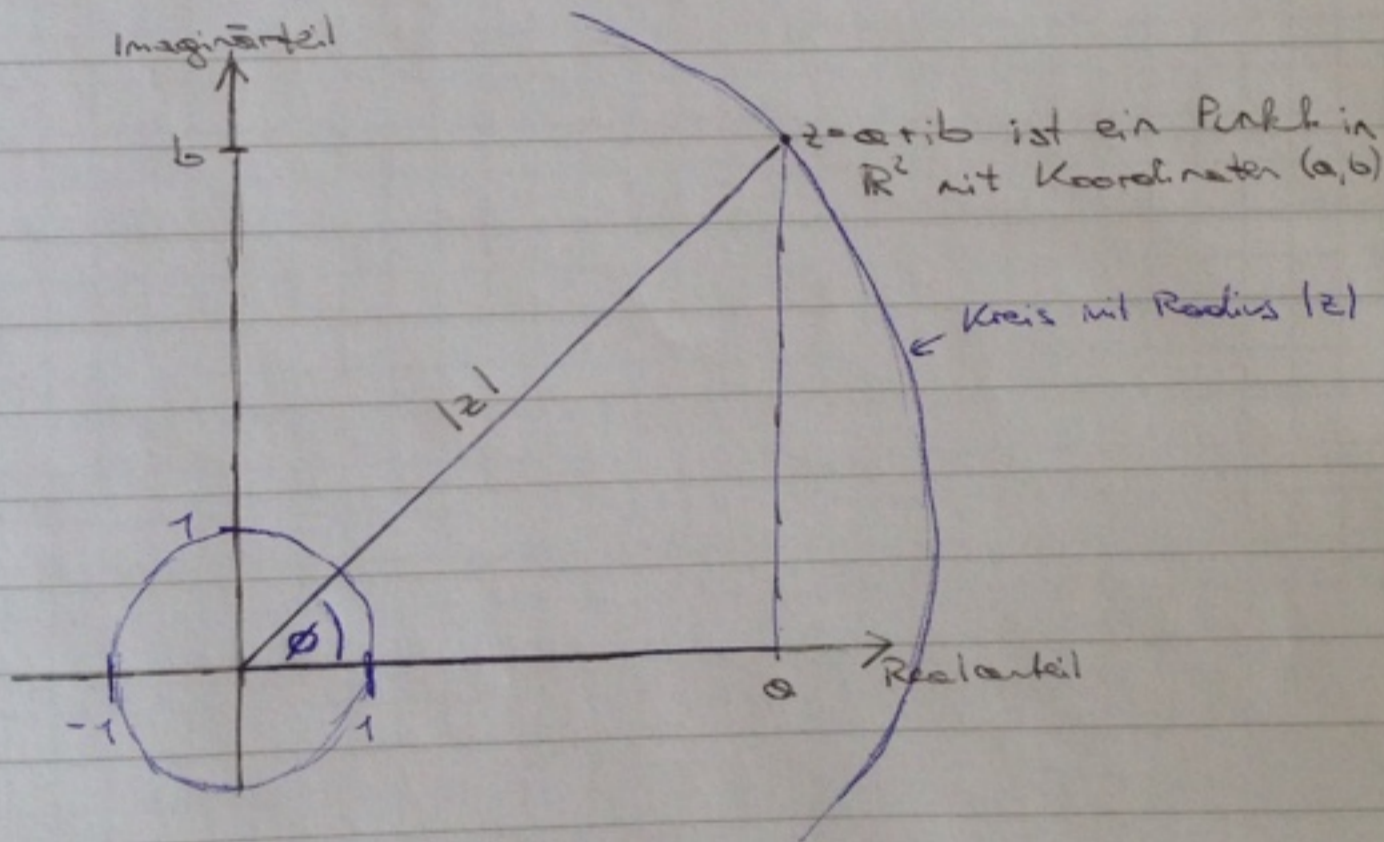 Imaginärteil
b
z=a+ib ist ein Punkt in
ℝ² mit Koordinaten (a,b)
Kreis mit Radius |z|
|z|
1
ø
Realanteil
a
-1
1